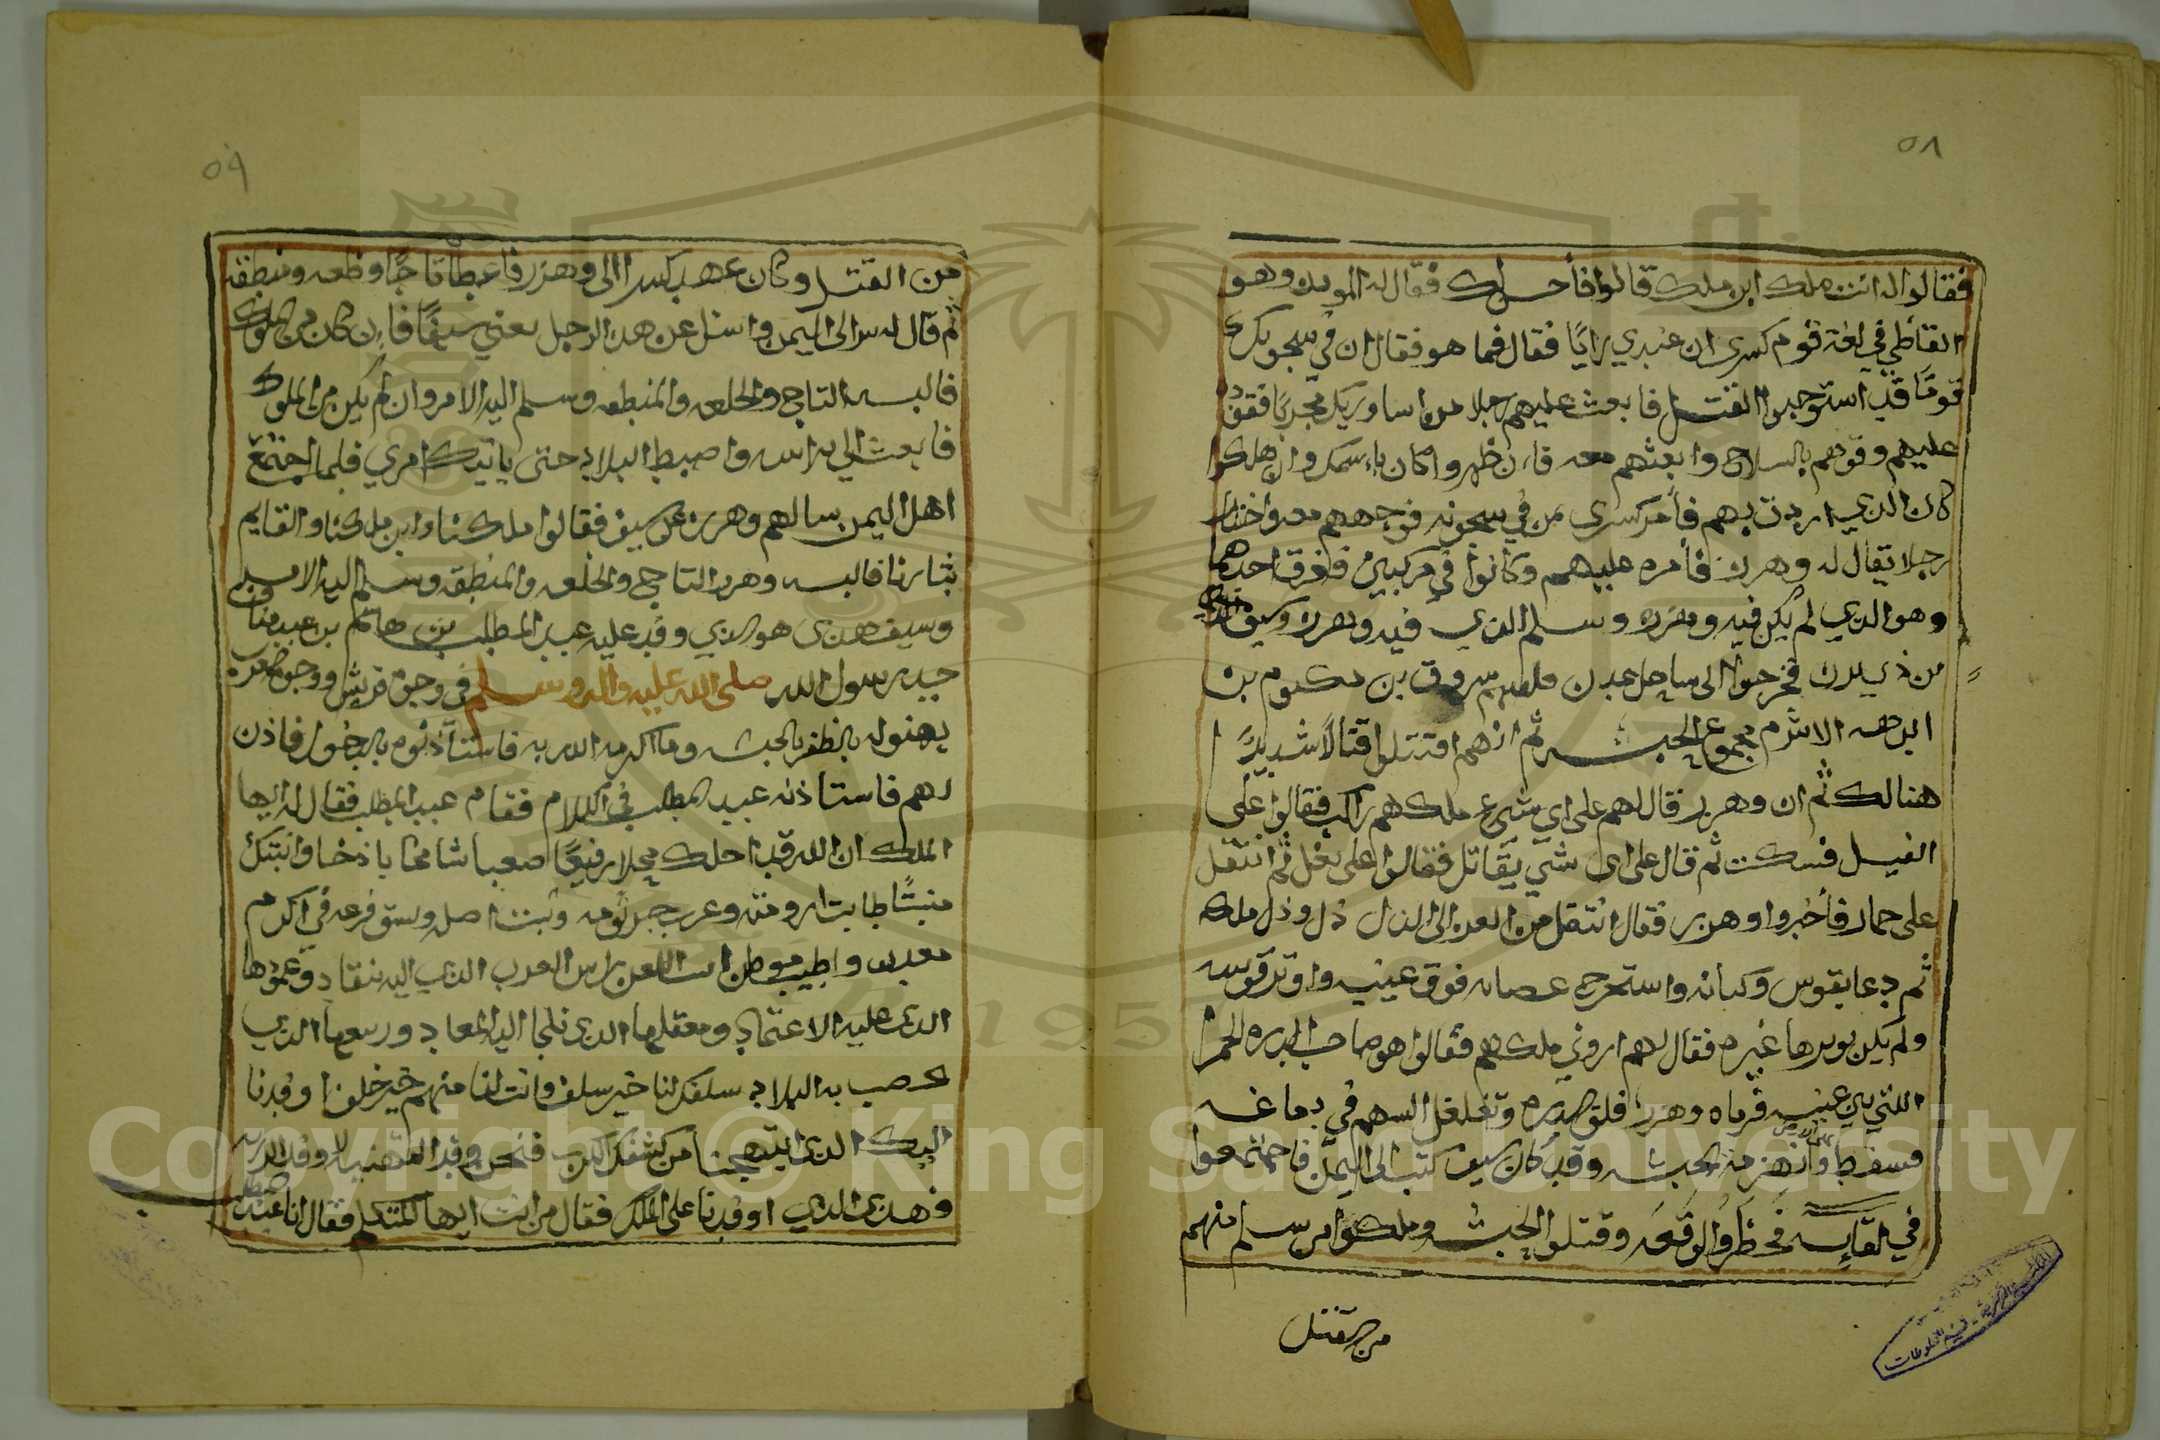 ٥٨
فقالوا له انت ملك ابن ملك قالوا فأحسن لك فقال له الموبدن وهو
القاطي في لغة قوم كسرى ان عندي رايًا فقال فما هو فقال ان في سجونك
قومًا قد استوجبوا القتل فابعث عليهم رجلا من اساورتك مجربًا فقف
عليهم وقوهم بالسلاح وابعثهم معه فان ظهروا كان باسمك وان هلكوا
كان الذي اردت بهم فأمر كسرى من في سجونه فوجههم معه واختار
رجلا يقال له وهرز فأمره عليهم وكانوا في مركبين فغرق احدهما
وهو الذي لم يكن فيه وهرز وسلم الذي فيه وهرز وسيف
من ذي يزن فخرجوا الى ساحل عدن فلقيهم مسروق بن مكسوم بن
ابرهه الاشرم مجموع الحبشه ثم انهم اقتتلوا قتالاً شديدًا
هنالك ثم ان وهرز قال لهم على اي شيء ملكهم راكب فقالوا على
الفيل فسكت ثم قال على اي شي يقاتل فقالوا على بغل ثم انتقل
على حمار فأخبروا وهرز فقال انتقل من العز الى الذل ذل وذل ملكه
ثم دعا بقوس وكنانه واستخرج عصابه فوق عينيه واوتر قوسه
ولم يكن يوترها غيره فقال لهم اروني ملكهم فقالوا هو صاحب الدره الحمرا
اللتي بين عينيه فرماه وهرز فلق صدره وتغلغل السهم في دماغه
فسقط وانهزمت الحبشه وقد كان سيف كتب الى اليمن فاجتمعوا
في لقايه فحظروا الوقعه وقتلوا الحبشه وملكوا من سلم منهم
من القتل
٥٩
من القتل وكان عهد كسرا الى وهرز فاعطاه تاجًا وخلعه ومنطقه
ثم قال له سر الى اليمن واسئل عن هذا الرجل يعني سيفًا فان كان من الملوك
فالبسه التاج والخلعه والمنطقه وسلم اليه الامر وان لم يكن من الملوك
فابعث الي براسه واضبط البلاد حتى ياتيك امري فلما اجتمع
اهل اليمن سالهم وهرز عن سيف فقالوا ملكنا وابن ملكنا والقايم
بثارنا فالبسه وهرز التاج والخلعه والمنطقه وسلم اليه الامر
وسيف هذا هو الذي وفد عليه عبد المطلب بن هاشم بن عبد مناف
جد رسول الله صلى الله عليه واله وسلم في وجوه قريش ووجوه
يهنوله بالظفر بالحبشه وما اكرمه الله به فاستأذنوه بالدخول فاذن
لهم فاستاذنه عبد المطلب في الكلام فقام عبد المطلب فقال له ايها
الملك ان الله قد احلك محلا رفيعًا صعبا شامخا باذخا وانبتك
منبتًا طابت ارومته وعرب جرثومه وثبت اصله وبسق فرعه في اكرم
معدن واطيب موطن انت اللعن راس العرب الذي اليه تنقاد وعمودها
الذي عليه الاعتماد ومعقلها الذي تلجا اليه العباد وربيعها الذي
تخصب به البلاد سلفك لنا خير سلف وانت لنا منهم خير خلف اوفدنا
اليك الذي ابتهجنا من كشفك الكرب فنحن وفد التهنيه لا وفد
فهذا الذي اوفدنا على الملك فقال من انت ايها المتكلم فقال انا عبد